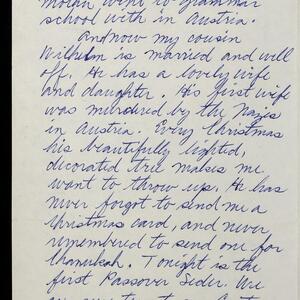 went to grammar
school with in Austria.
And now my cousin
Wilhelm is married and well
off. He has a lovely wife
and daughter. His first wife
was murdered by the Nazis
in Austria. Every Christmas
his beautifully lighted,
decorated tree makes me
want to throw up. He has
never forgot to send me a
Christmas card, and never
remembered to send one for
Chanukah. Tonight is the
first Passover Seder. We